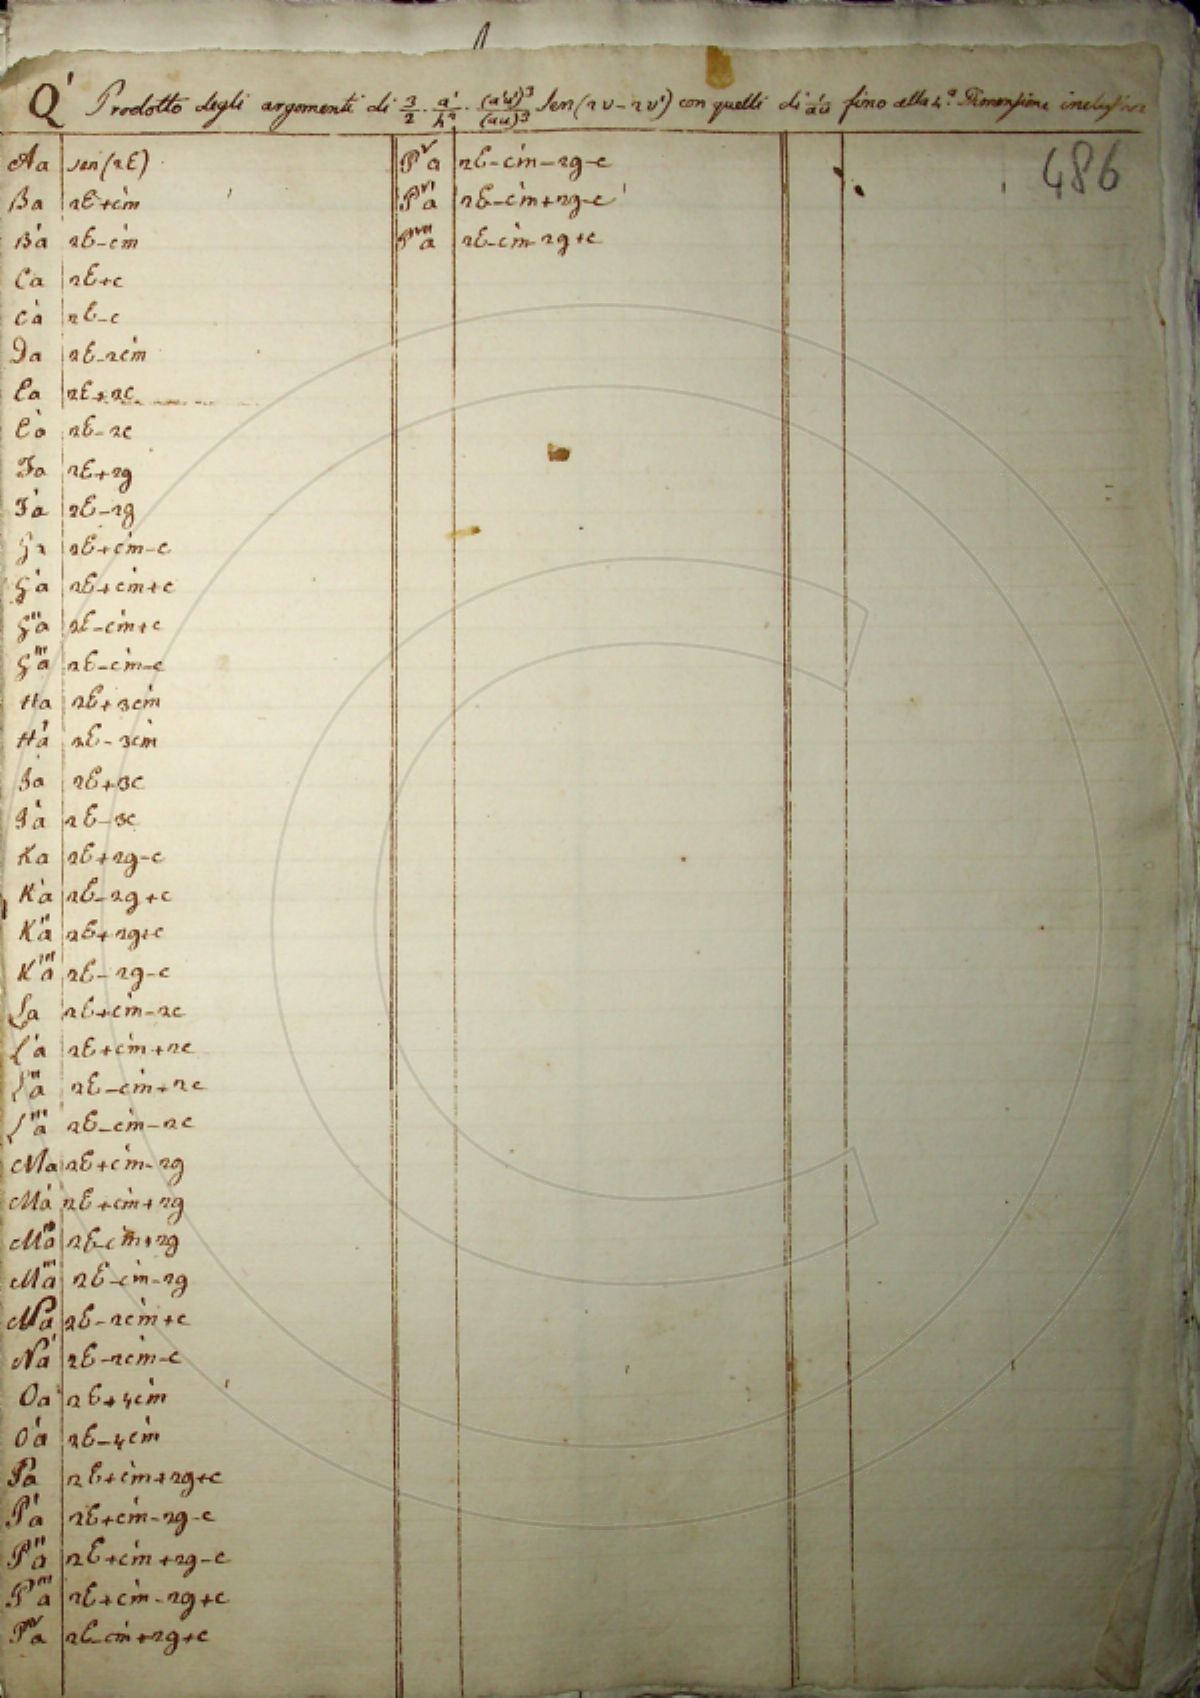 Q' Prodotto degli argomenti di 3/2 . a'/h² . (a'u')³/(au)³ Sen(2v-2v') con quelli di áa fino alla 4.ª Dimensione inclusive
486
Aa sen(2E)
Ba 2E+ćm
B'a 2E-ćm
Ca 2E+c
C'a 2E-c
Da 2E-2ćm
Ea 2E+2c
E'a 2E-2c
Fa 2E+2g
F'a 2E-2g
Ga 2E+ćm-c
G'a 2E+ćm+c
G''a 2E-ćm+c
G'''a 2E-ćm-c
Ha 2E+3ćm
H'a 2E-3ćm
Ja 2E+3c
J'a 2E-3c
Ka 2E+2g-c
K'a 2E-2g+c
K''a 2E+2g+c
K'''a 2E-2g-c
La 2E+ćm-2c
L'a 2E+ćm+2c
L''a 2E-ćm+2c
L'''a 2E-ćm-2c
Ma 2E+ćm-2g
M'a 2E+ćm+2g
M''a 2E-ćm+2g
M'''a 2E-ćm-2g
Na 2E-2ćm+c
N'a 2E-2ćm-c
Oa 2E+4ćm
O'a 2E-4ćm
Pa 2E+ćm+2g+c
P'a 2E+ćm-2g-c
P''a 2E+ćm+2g-c
P'''a 2E+ćm-2g+c
P^IV a 2E-ćm+2g+c
P^V a 2E-ćm-2g-c
P^VI a 2E-ćm+2g-c
P^VII a 2E-ćm-2g+c